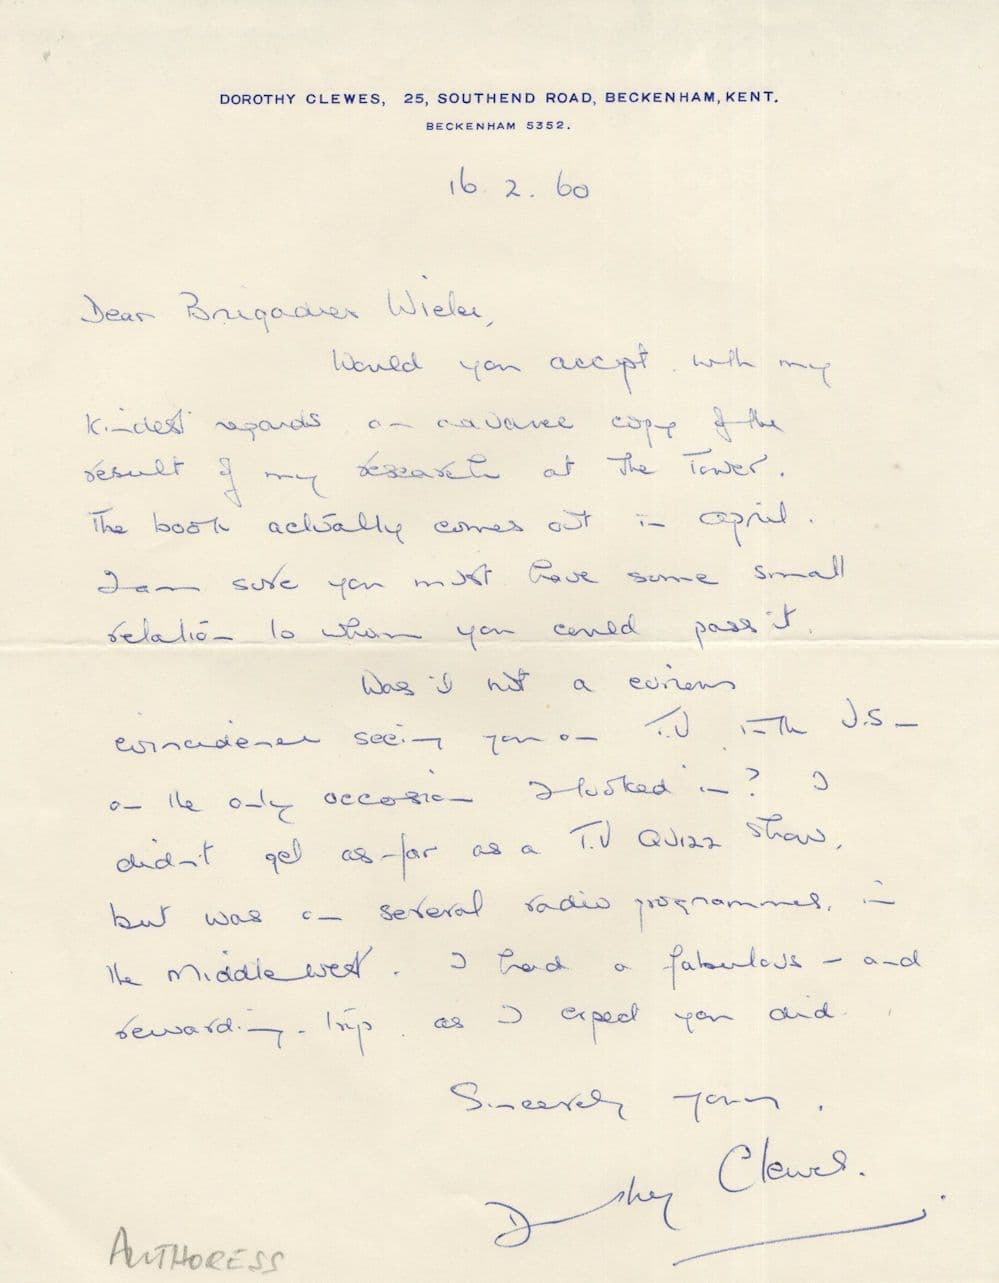 DOROTHY CLEWES, 25, SOUTHEND ROAD, BECKENHAM, KENT.
BECKENHAM 5352.
16. 2. 60
Dear Brigadier Wieler,
Would you accept with my
kindest regards an advance copy of the
result of my research at the Tower.
The book actually comes out in april.
I am sure you must have some small
relation to whom you could pass it.
Was it not a curious
coincidence seeing you on T.V in the U.S -
on the only occasion I looked in? I
didn't get as far as a T.V Quizz show,
but was on several radio programmes, in
the middle west. I had a fabulous - and
rewarding - trip as I expect you did.
Sincerely yours,
Dorothy Clewes.
AUTHORESS